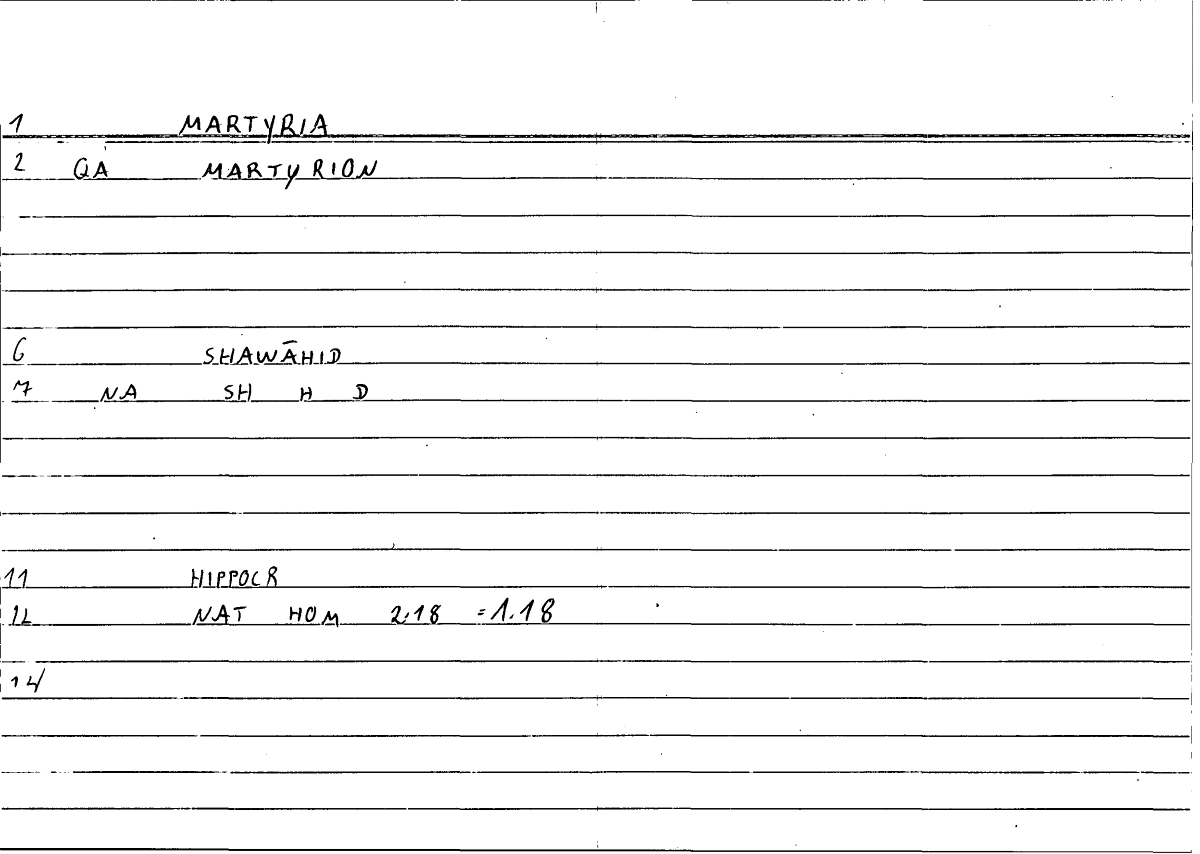 1 MARTYRIA
2 QA MARTYRION
6 SHAWĀHID
7 NA SH H D
11 HIPPOCR
12 NAT HOM 2.18 =1.18
14